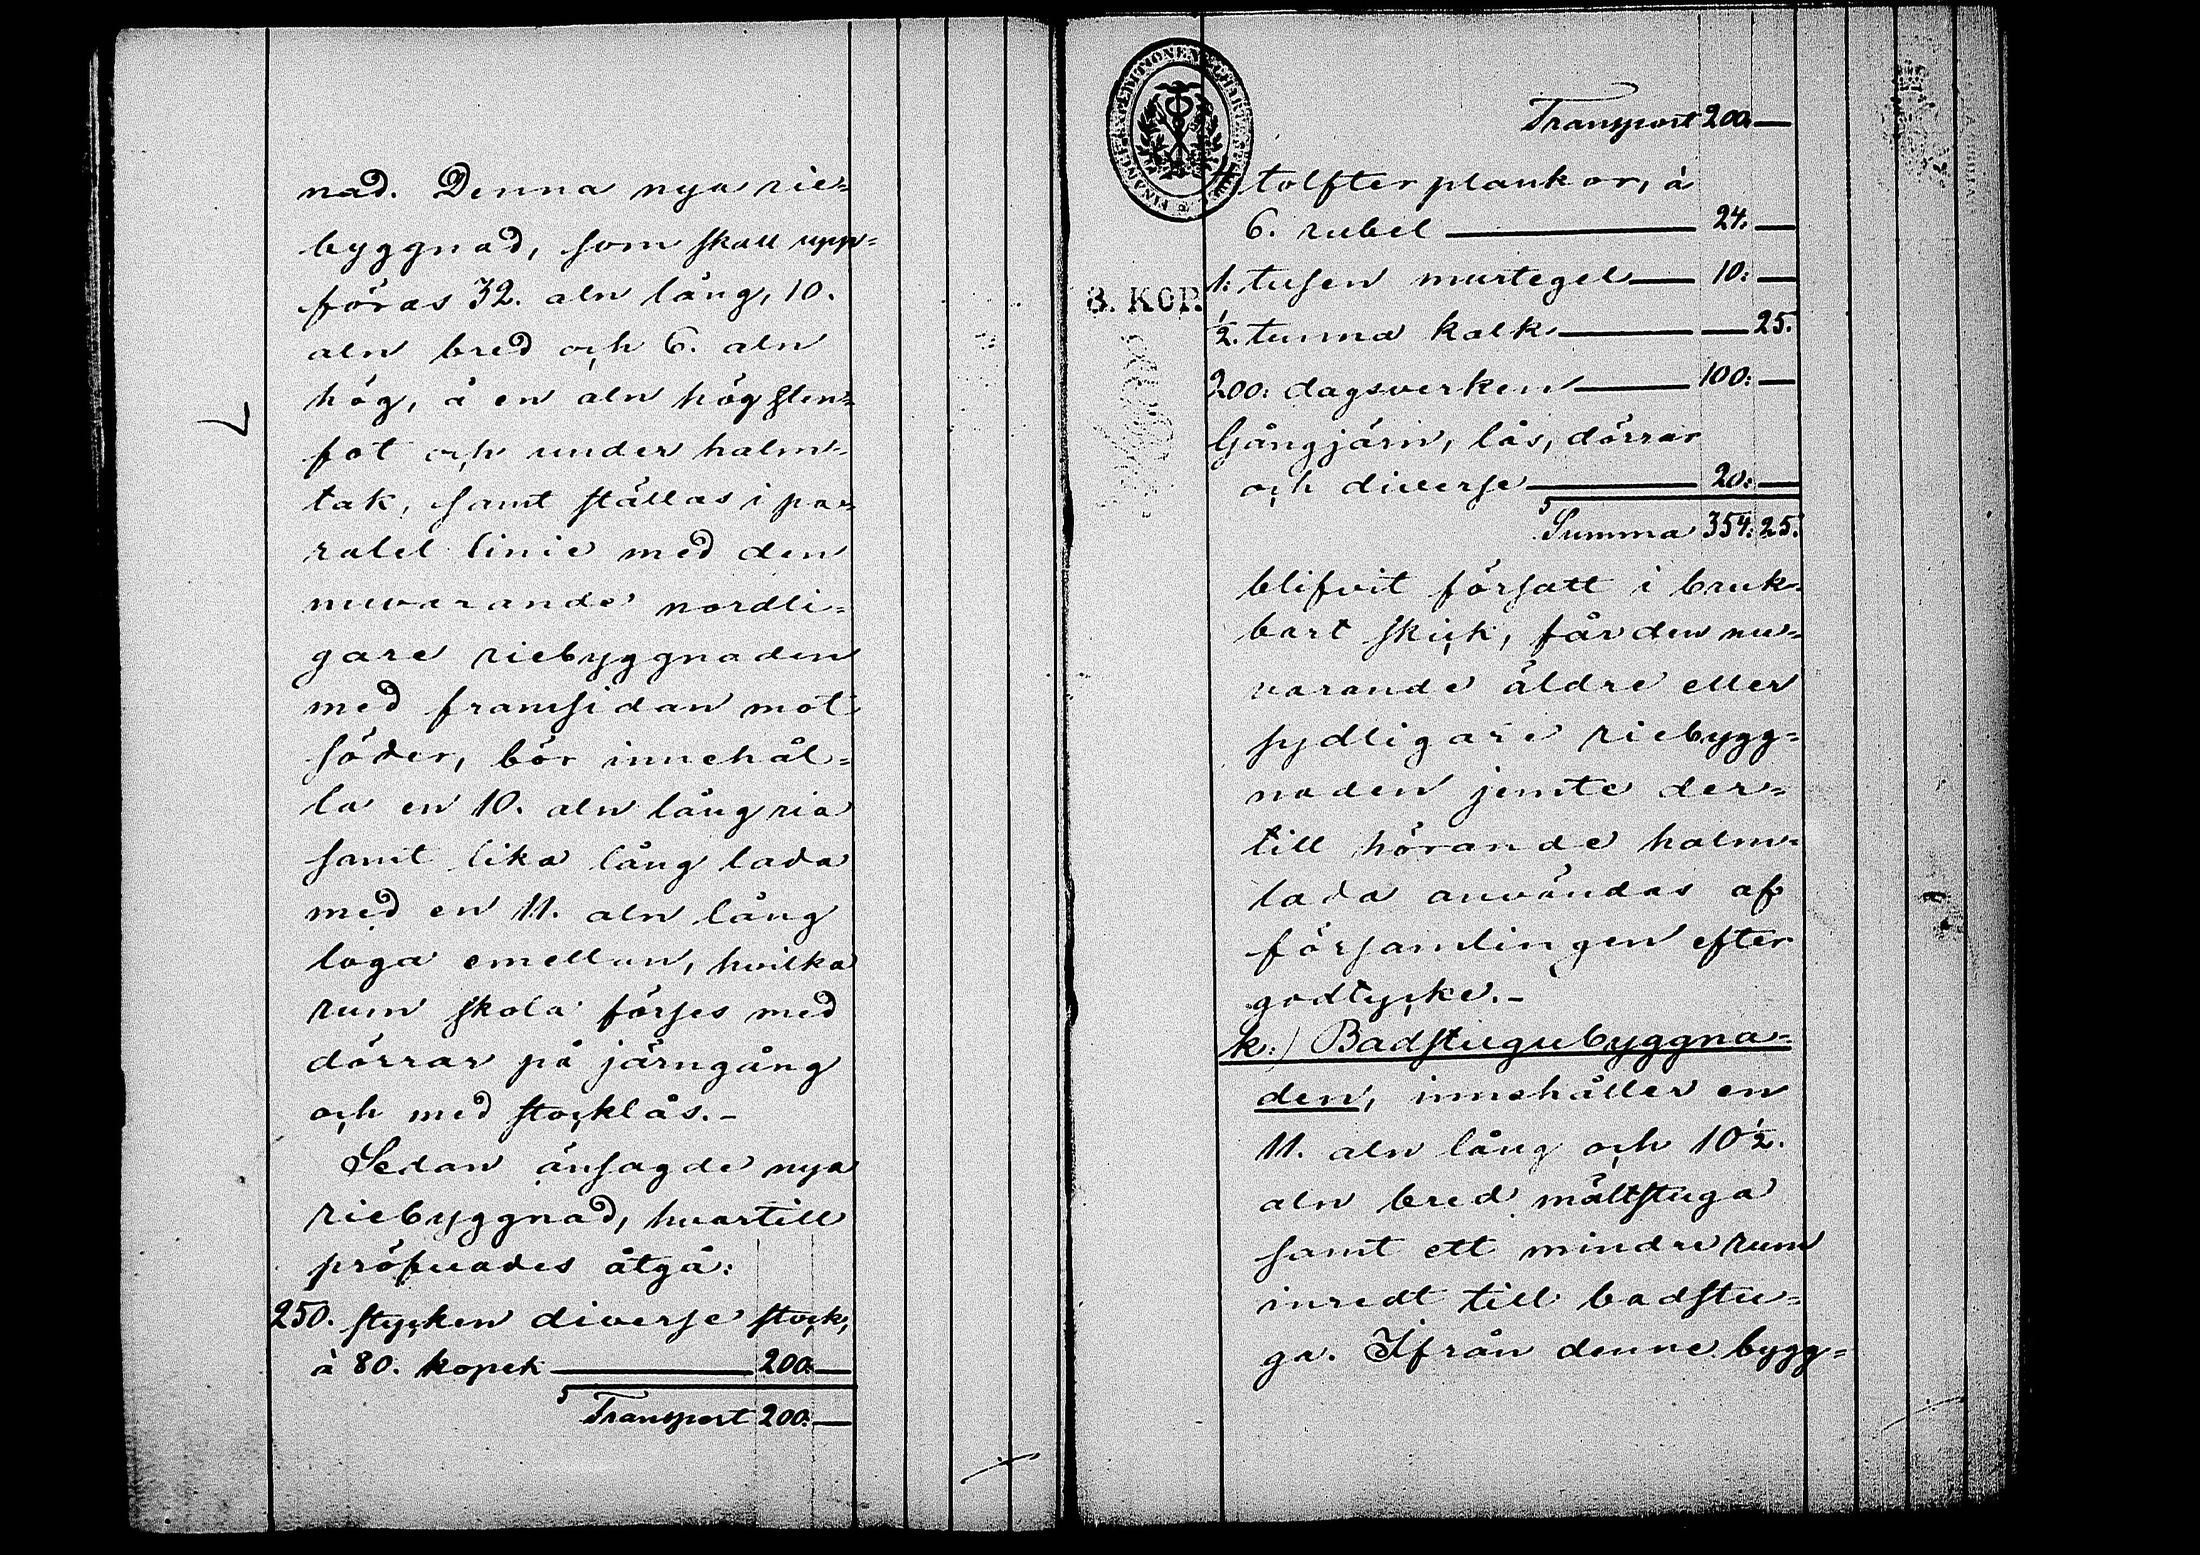 nad. Denna nya rie=
byggnad, som skall upp=
föras 32. aln lång, 10.
aln bred och 6. aln
hög, å en aln hög sten=
fot och under halm=
tak, samt ställas i pa=
ralel linie med den
nuvarande nordli=
gare riebyggnaden
med framsidan mot
söder, bör innehål=
la en 10. aln lång ria
samt lika lång lada
med en 11. aln lång
loga emellan, hvilka
rum skola förses med
dörrar på järngång
och med stocklås.-
Sedan ånsagde nya
riebyggnad, hvartill
pröfvades åtgå:
250. stycken diverse stock,
à 80. kopek 200: —
Transport 200: —
Transport 200: —
4. tolfter plankor, à
6. rubel 24: —
1: tusen murtegel 10: —
1/2. tunna kalk — 25.
200: dagsverken 100: —
Gångjärn, lås, dörrar
och diverse 20: —
Summa 354: 25.
3. KOP.
blifvit försatt i bruk=
bart skick, får den nu=
varande äldre eller
sydligare riebygg=
naden jemte der=
till hörande halm=
lada användas af
församlingen efter
godtycke.-
k:) Badstugubyggna=
den, innehåller en
11. aln lång och 10 1/2.
aln bred mältstuga
samt ett mindre rum
inredt till badstu=
ga. Ifrån denne bygg=